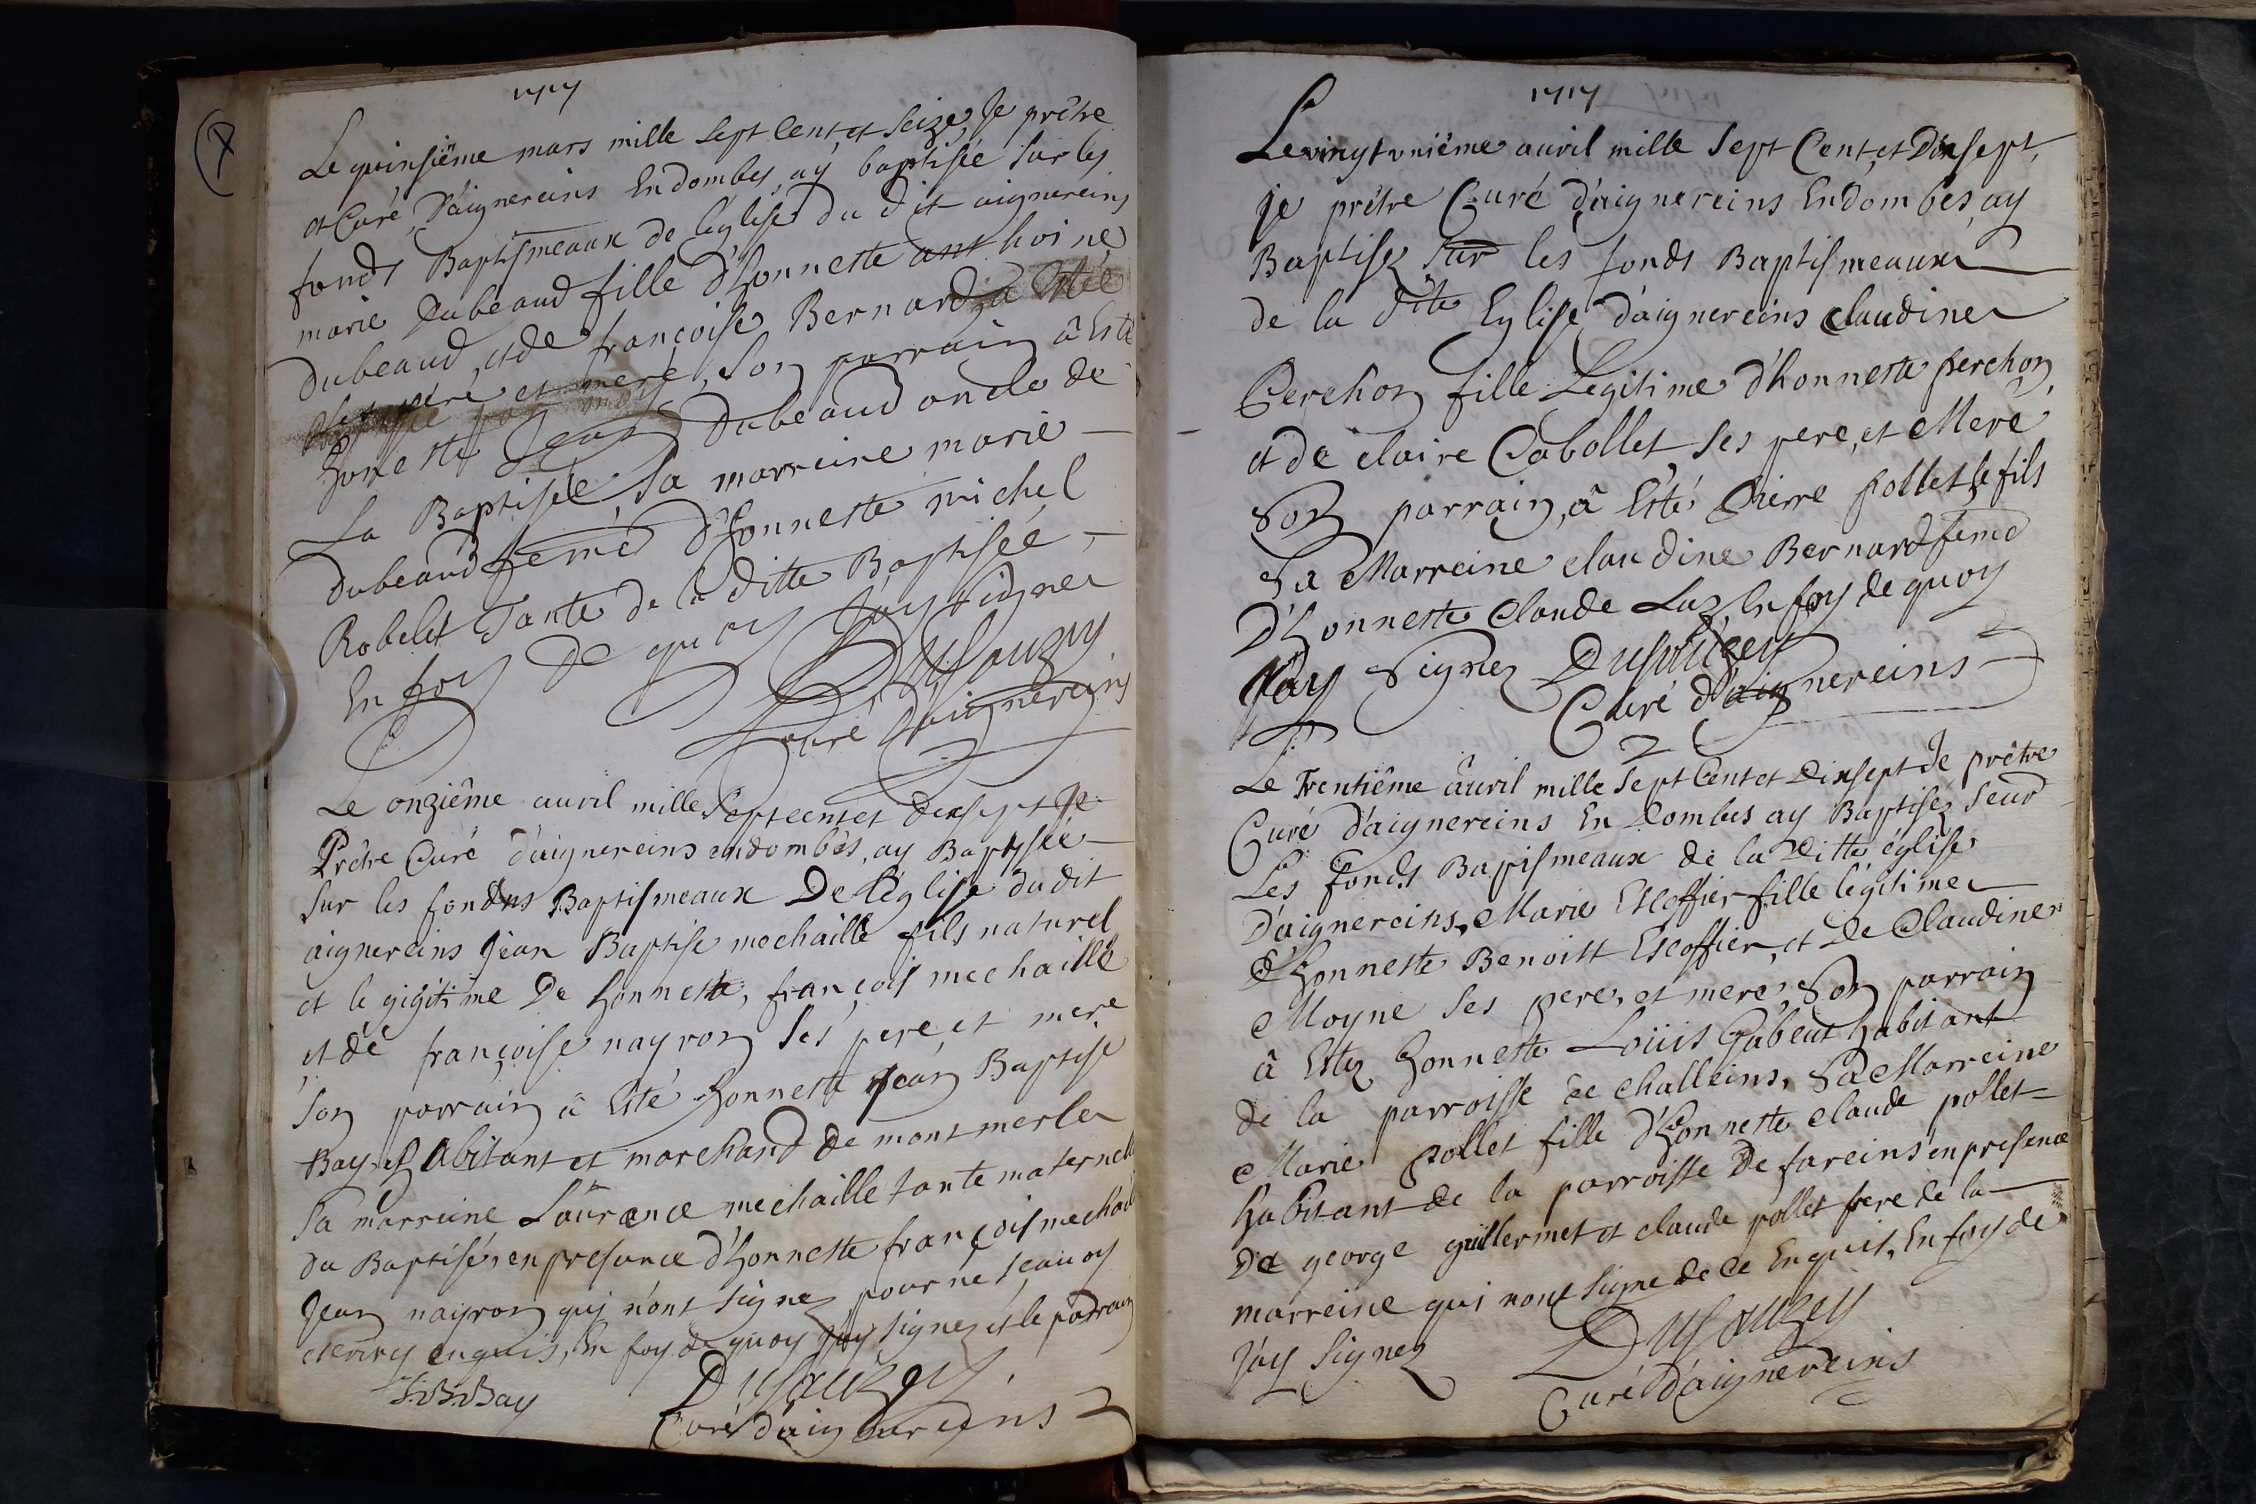 7
1717
Le quinsiême mars mille sept Cent et seize, Je prêtre
et Curé D'aignereins En dombes, ay baptisée sur les
fonds Baptismeaux de l'église du dit aignereins
marie Dubeaud fille d'honneste anthoine
Dubeaud, et de françoise Bernard
péré et meré, son parrain â Esté
honeste Jean Dubeaud oncle de
La Baptisée, sa marreine marie
dubeaud feme d'honneste michel
Robelet Tante de la ditte Baptisée,
En foy de quoy J'ay signez
Dusauzey
Curé D'aignereins
Le onziême auril mille Sept cent et dixsept Je
Prêtre Curé d'aignereins en dombes, ay Baptisée
sur les fonds Baptismeaux De l'église du dit
aignereins Jean Baptise mechaille fils naturel
et le gigitime De honneste, françois mechaille
et dé françoise nayron ses pere, et mere
son parrain â Esté honneste Jean Baptise
Bay, habitant et marchand de montmerle
sa marreine Laurance mechaille tante maternelle
du Baptisé, en presance d'honneste françois mechaille
Jean nayron qui n'ont signez pour ne sçauoy
enquis, En foy de quoy J'ay signez et le parrain
J.B. Bay
Dusauzey
Curé d'aignereins
1717
Le vingt uniême auril mille sept Cent, et Dixsept,
je prêtre Curé d'aignereins En dombes, ay
Baptisez sur les fonds Baptismeaux
de la dite Eglise d'aignereins claudine
Perchon fille Legitime d'honneste perchon
et de claire Cabollet ses pere, et Meré
Son parrain, â Esté Pierre pollet le fils
Sa Marreine claudine Bernard feme
D'honneste Claude Luz, En foy de quoy
J'ay Signez Dusauzey
Curé d'aignereins
Le Trentiême âuril mille Sept Cent et Dixsept Je prêtre
Curé d'aignereins En Dombes ay Baptisez seur
Les fonds Bapismeaux de la Ditte église
D'aignereins, Marie Escoffier fille légitime
d'honneste Benoist Escoffier, et De Claudine
Moyne ses pere, et mere, Son parrain
â Estez honneste Loüis Gabeut habitant
de la parroisse de challeins, Sa Marreine
Marie pollet fille d'honneste claude pollet
habitant de la parroisse De fareins en presence
De george guillermet et claude pollet frere de la
marreine qui nont signe de ce Enquis, En foy de
J'ay signez
Dusauzey
Curé d'aignereins